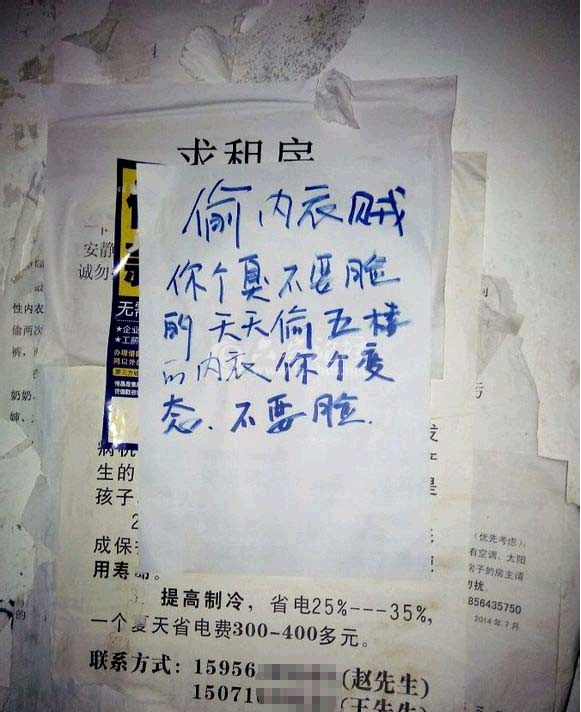 求租房
偷内衣贼
你个臭不要脸
的天天偷五楼
的内衣你个变
态.不要脸.
安静
诚勿
性内衣
偷两次
裤，
奶奶
婶、
无
★企业
★工薪
办理借
同以外
生的
孩子
成保
用寿命。
提高制冷，省电25%---35%，
一个夏天省电费300-400多元。
联系方式：15956 (赵先生)
15071 (王先生)
(优先考虑)，
有空调、太阳
房子的房主请
勿扰
856435750
2014年7月